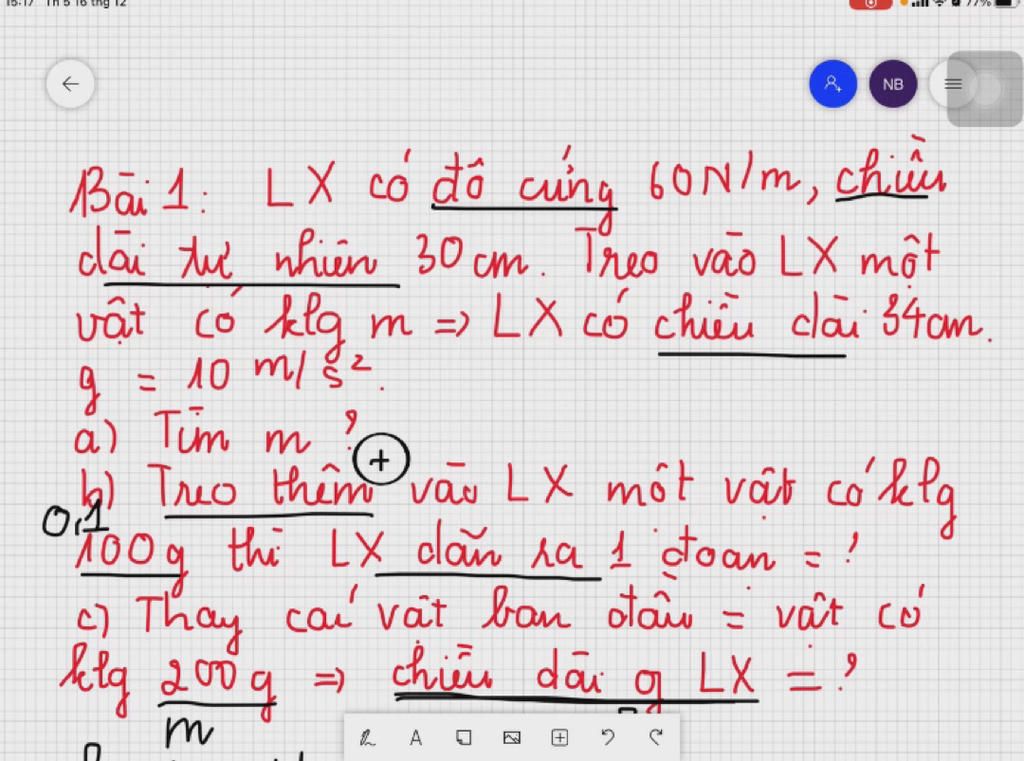 15:17 Th 5 16 thg 12
77%
NB
Bài 1: LX có độ cứng 60N/m, chiều
dài tự nhiên 30 cm. Treo vào LX một
vật có klg m => LX có chiều dài 34cm.
g = 10 m/s².
a) Tìm m ?
+
b) Treo thêm vào LX một vật có klg
0,1
100g thì LX dãn ra 1 đoạn = ?
c) Thay cái vật ban đầu = vật có
klg 200g => chiều dài of LX = ?
m
A